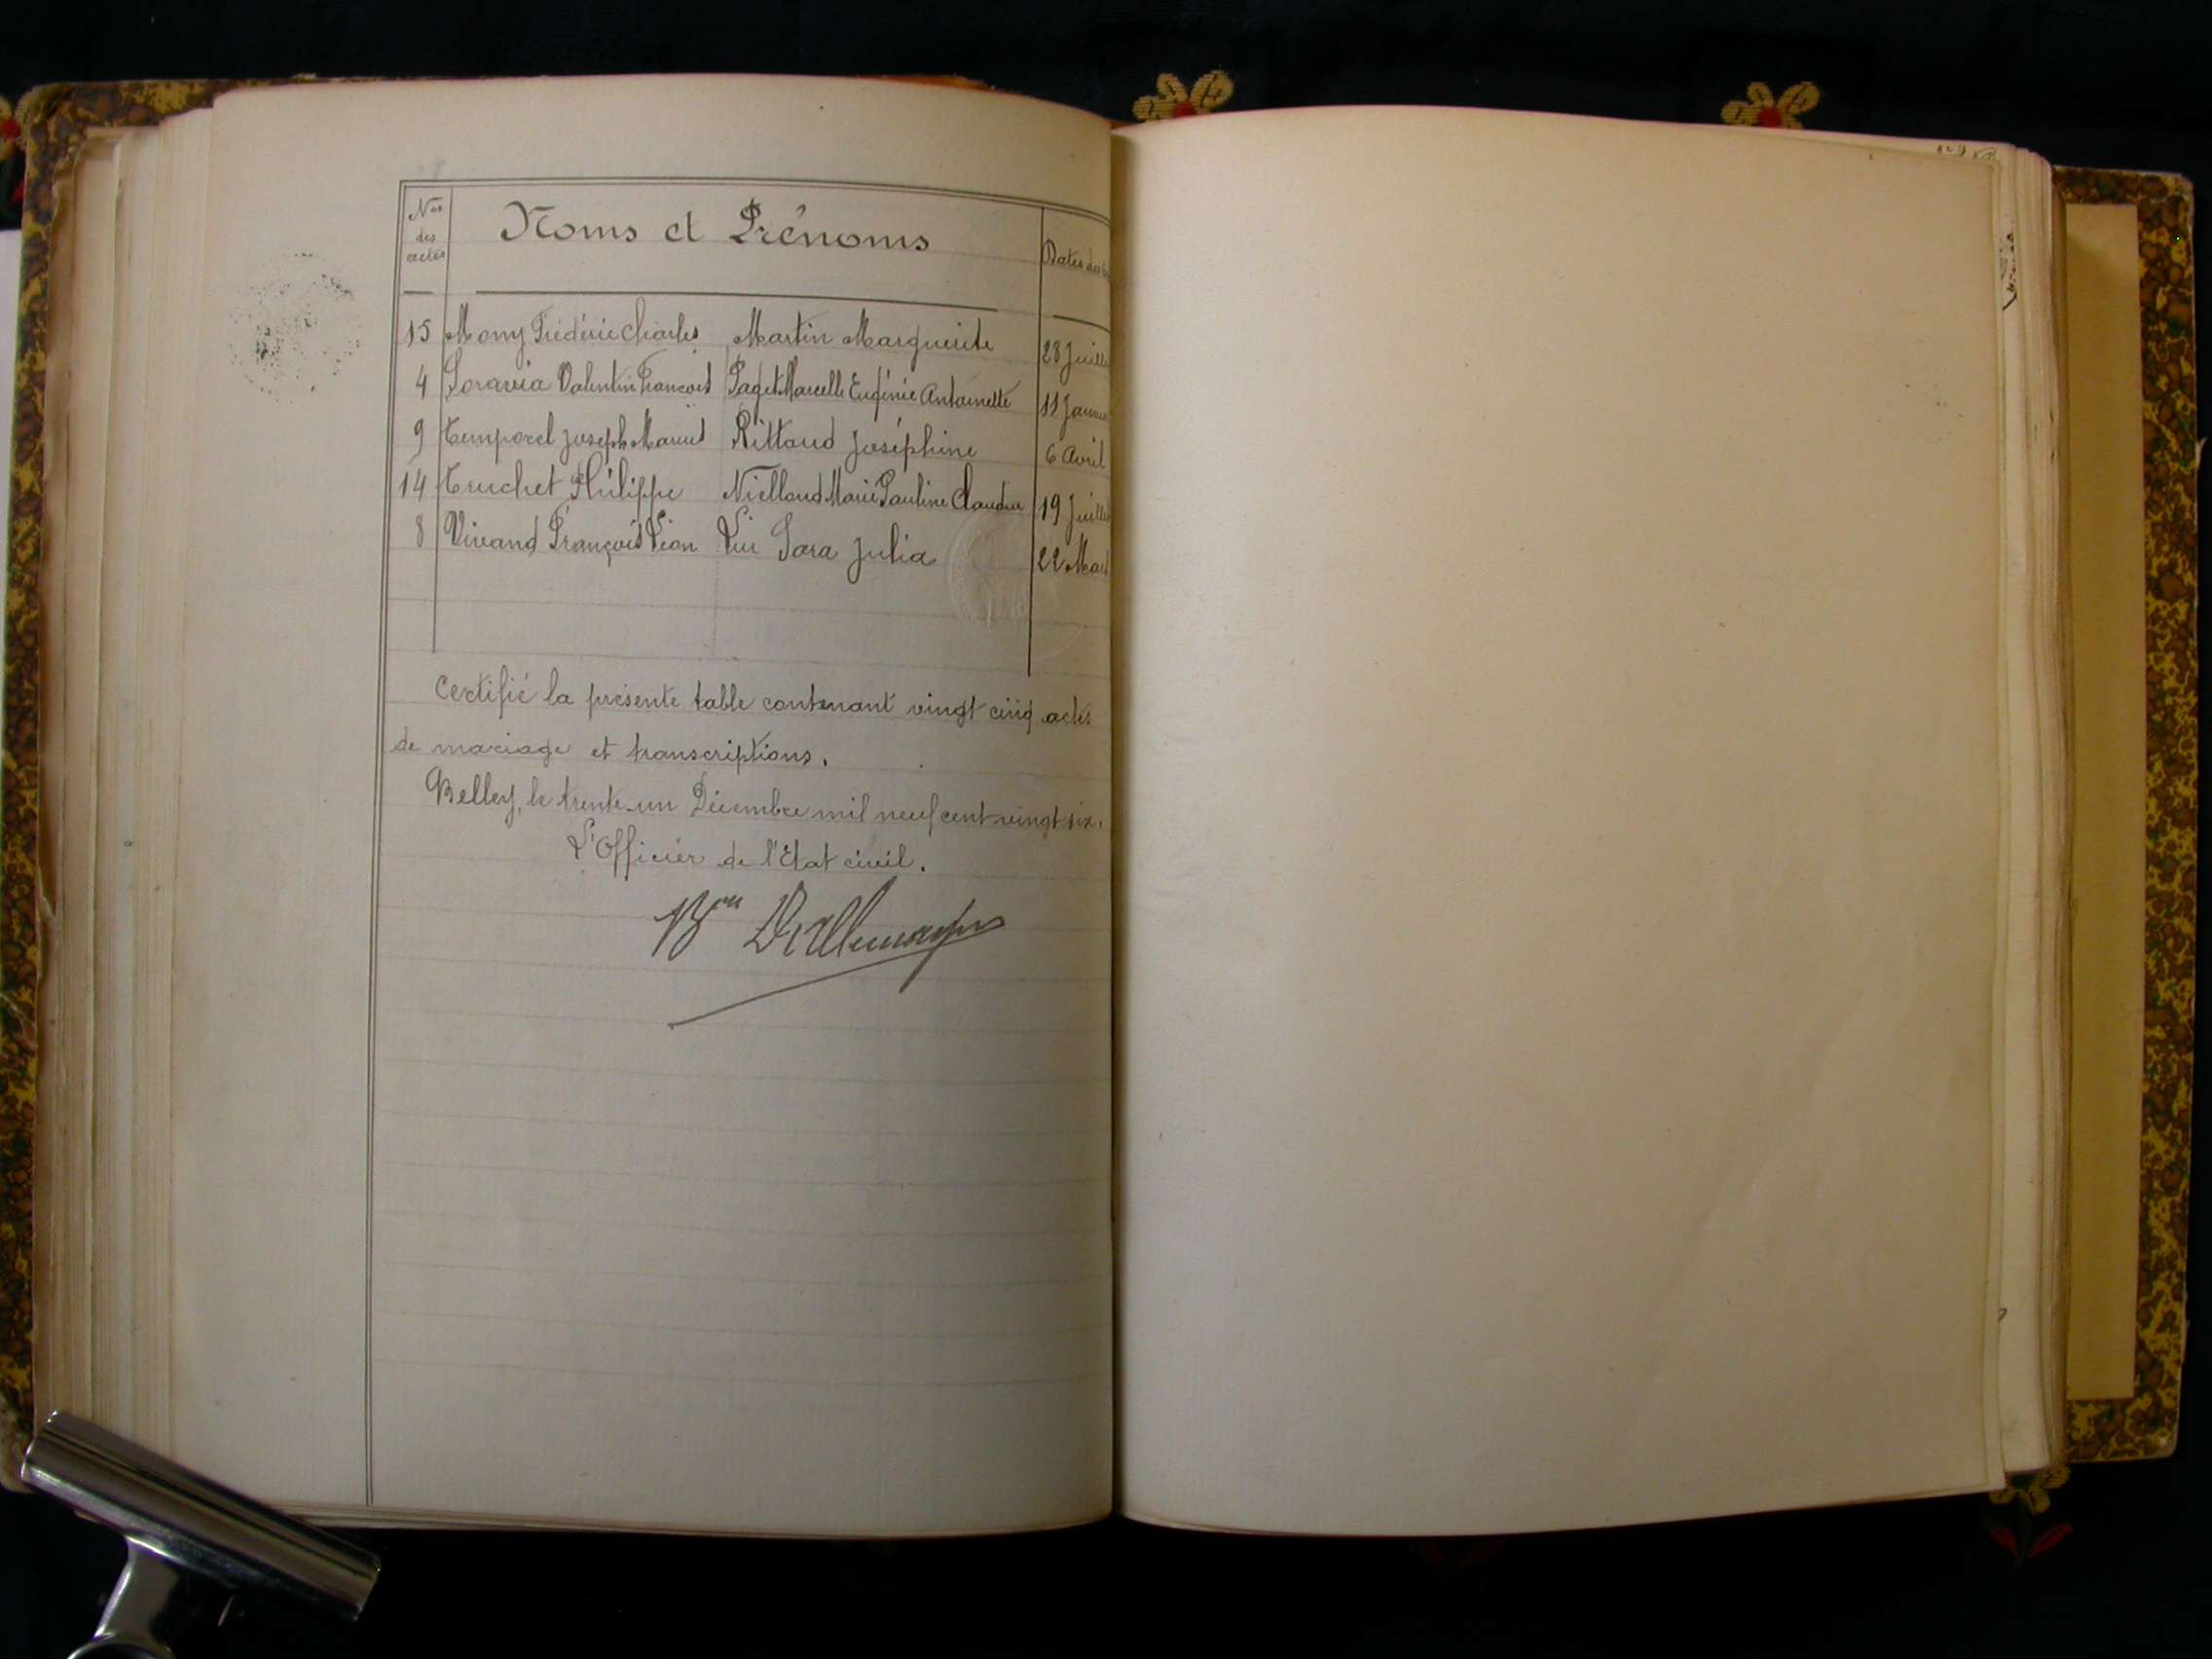 Nos des actes Noms et Prénoms Dates des
15 Mony Frédéric Charles Martin Marguerite 28 Juille
4 Soravia Valentin François Paget Marcelle Eugénie Antoinette 11 Janvie
9 Temporel Joseph Marius Rittaud Joséphine 6 Avril
14 Truchet Philippe Nielloud Marie Pauline Claudine 19 Juille
8 Vivand François Léon Vui Sara Julia 22 Mars
Certifié la présente table contenant vingt cinq actes
de mariage et transcriptions.
Belley, le trente-un Décembre mil neuf cent vingt six.
L'Officier de l'Etat civil.